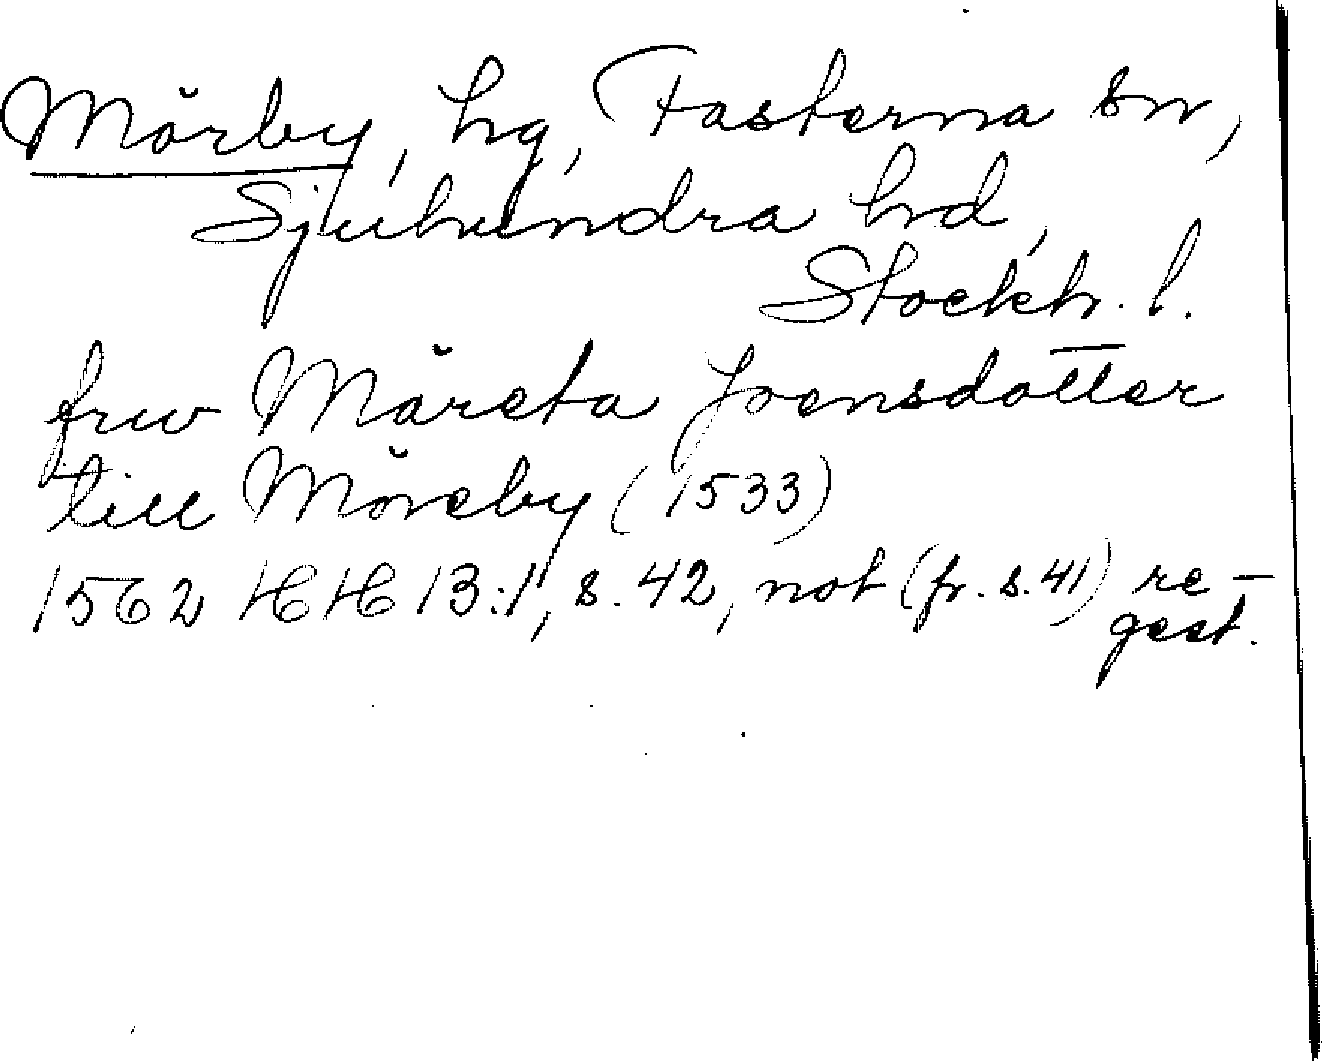 Mörby, hg, Fasterna sn,
Sjuhundra hd,
Stockh. l.
frw Märeta Joensdotter
till Möreby (1533)
1562 HH 13:1, s. 42, not (fr. s. 41) re-
gest.